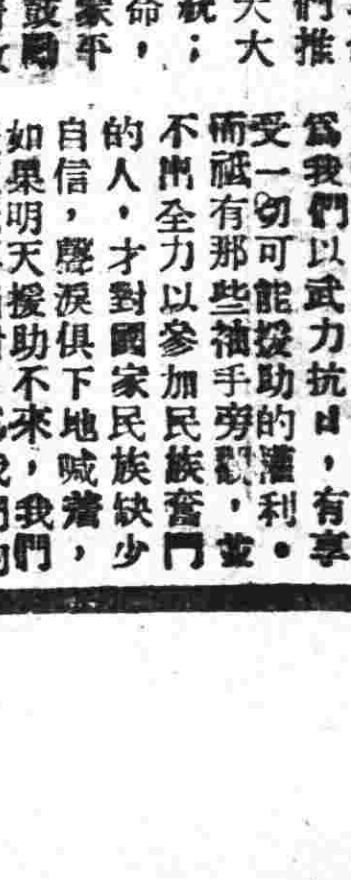 們推
大
；
命，
家平
鼓勵
爲我們以武力抗日，有享
受一切可能援助的權利。
而祗有那些袖手旁觀，並
不出全力以參加民族奮鬥
的人，才對國家民族缺少
自信，聲淚俱下地喊着，
如果明天援助不來，我們